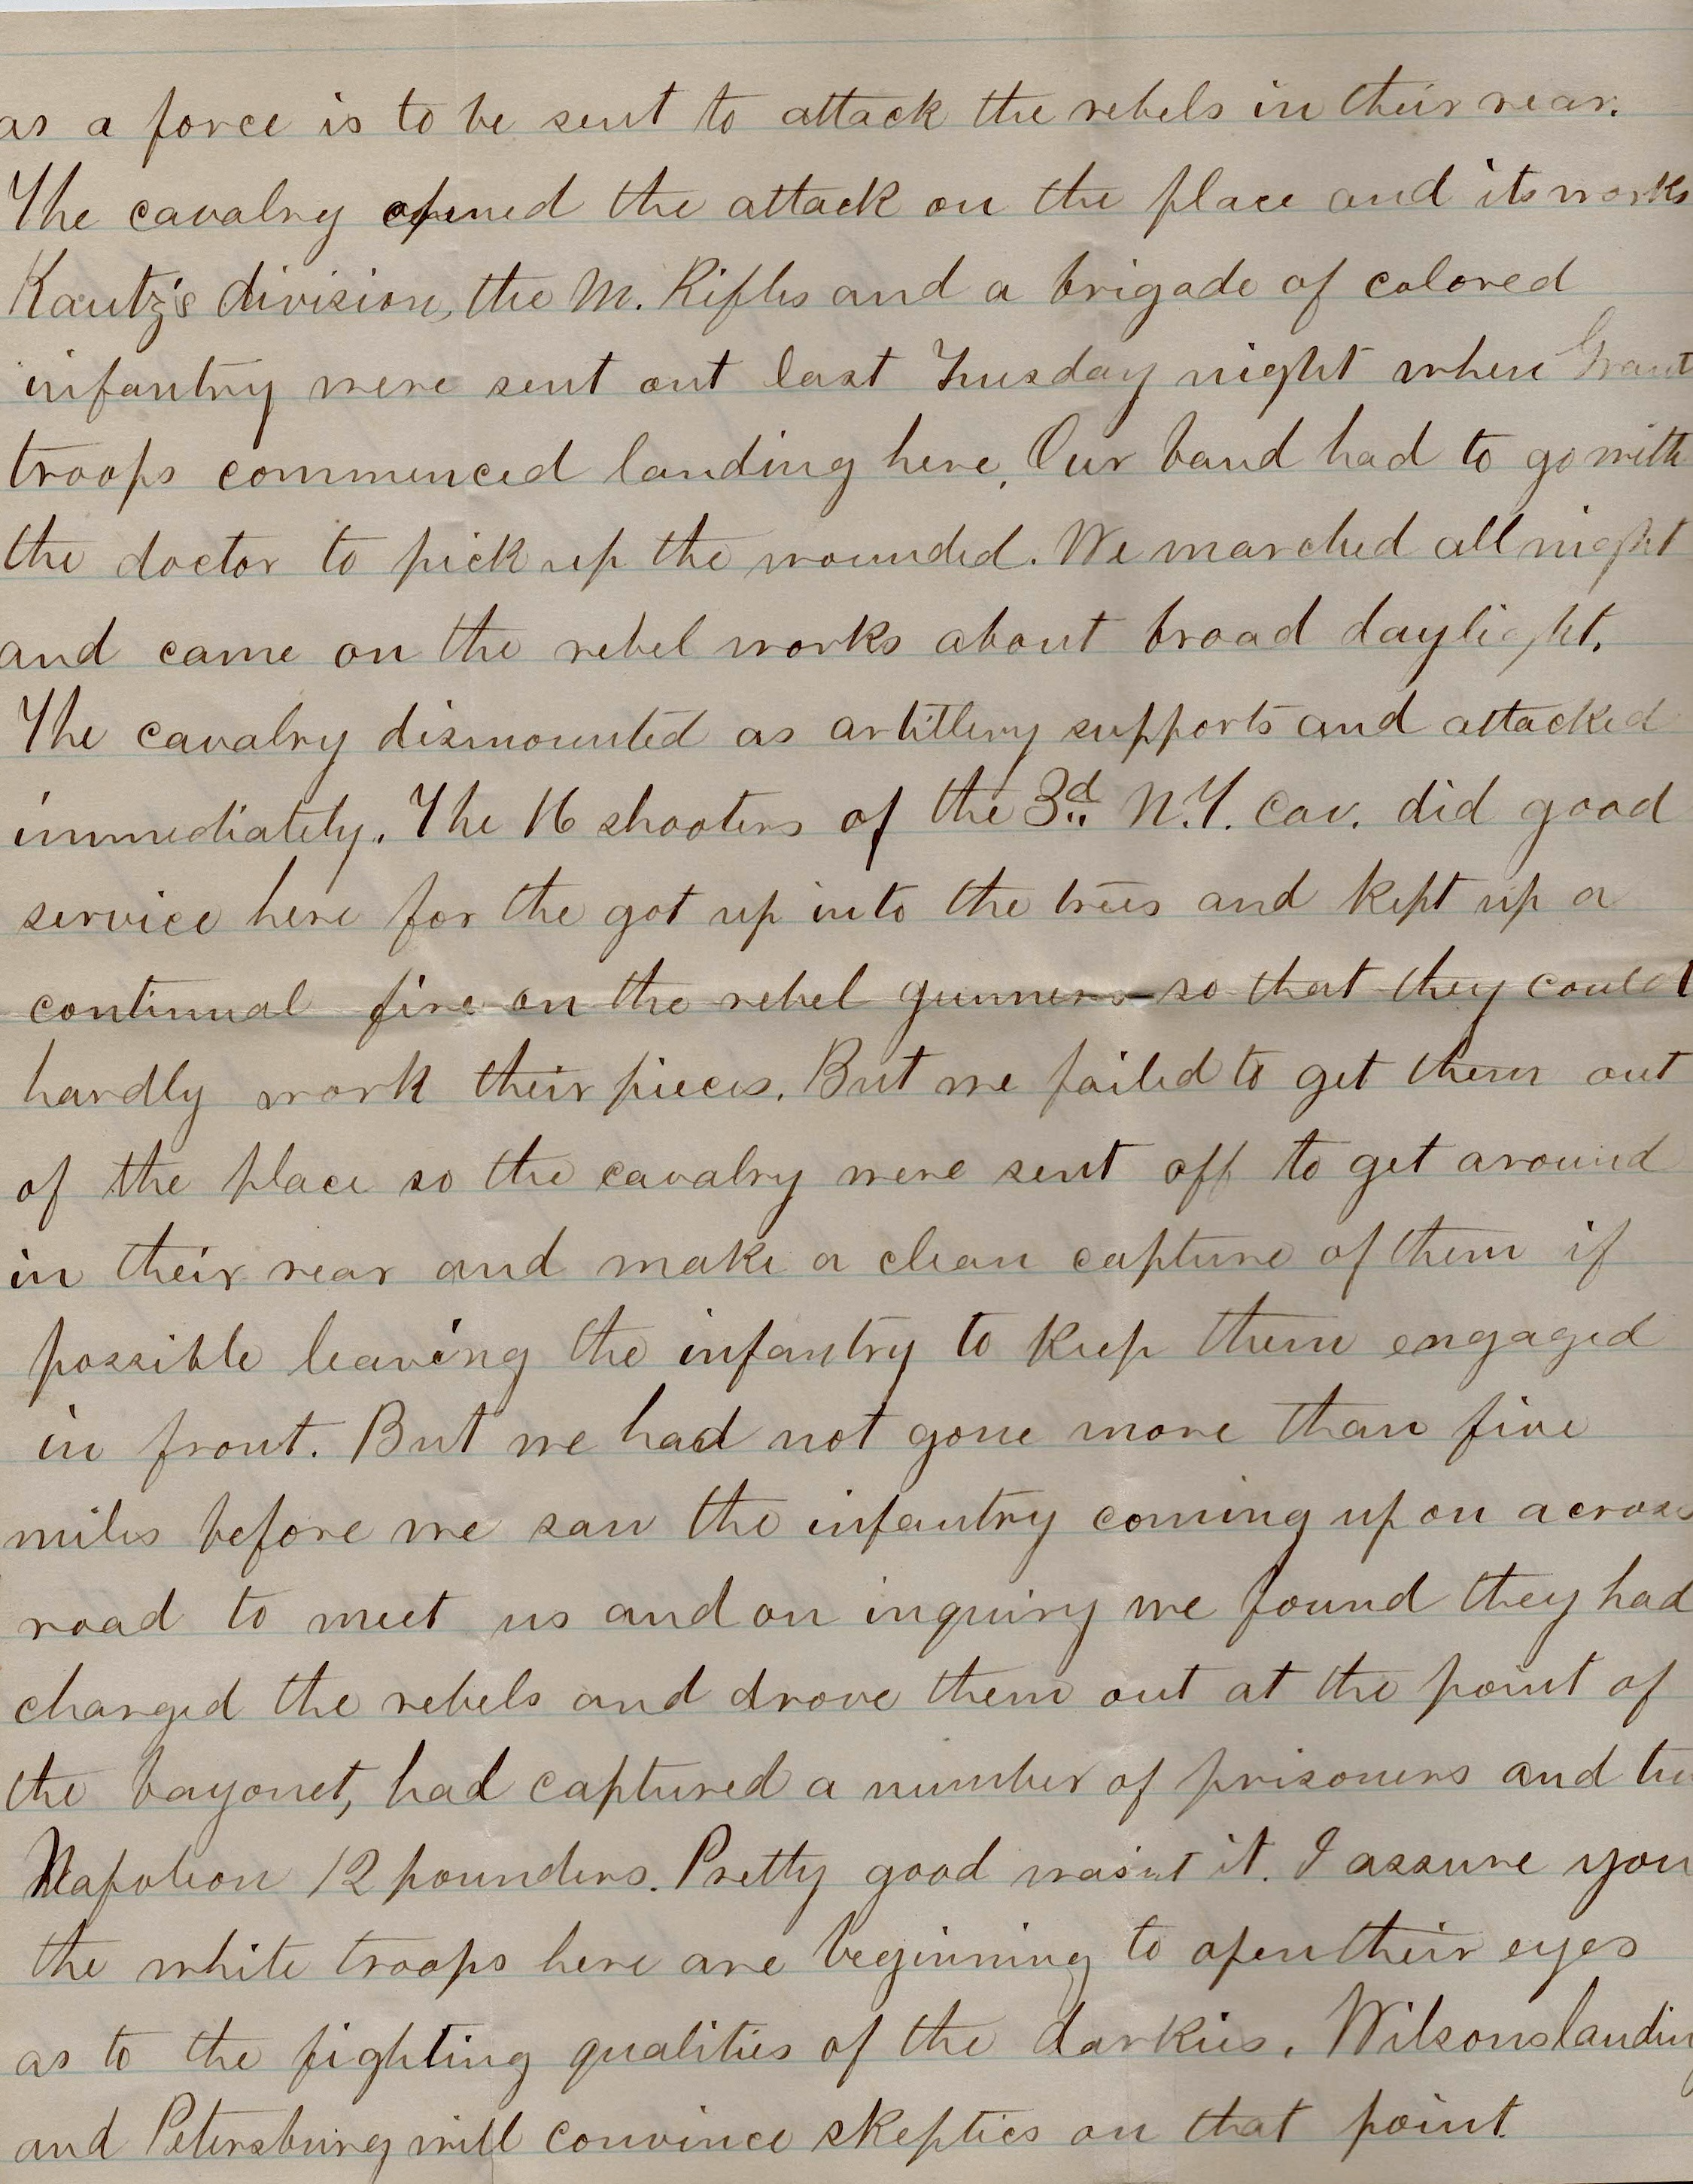 as a force is to be sent to attack the rebels in their rear.
The cavalry opened the attack on the place and its works
Kautz's division, the M. Rifles and a brigade of colored
infantry were sent out last Tuesday night when Grant
troops commenced landing here. Our band had to go with
the doctor to pick up the wounded. We marched all night
and came on the rebel works about broad daylight.
The cavalry dismounted as artillery supports and attacked
immediately. The 16 shooters of the 3d N.Y. Cav. did good
service here for the got up into the trees and kept up a
continual fire on the rebel gunners so that they could
hardly work their pieces. But we failed to get them out
of the place so the cavalry were sent off to get around
in their rear and make a clean capture of them if
possible leaving the infantry to keep them engaged
in front. But we had not gone more than five
miles before we saw the infantry coming up on a cross
road to meet us and on inquiry we found they had
charged the rebels and drove them out at the point of
the bayonet, had captured a number of prisoners and
Napoleon 12 pounders. Pretty good wasint it. I assure you
the white troops here are beginning to open their eyes
as to the fighting qualities of the darkies. Wilsons landing
and Petersburg will convince skeptics on that point.